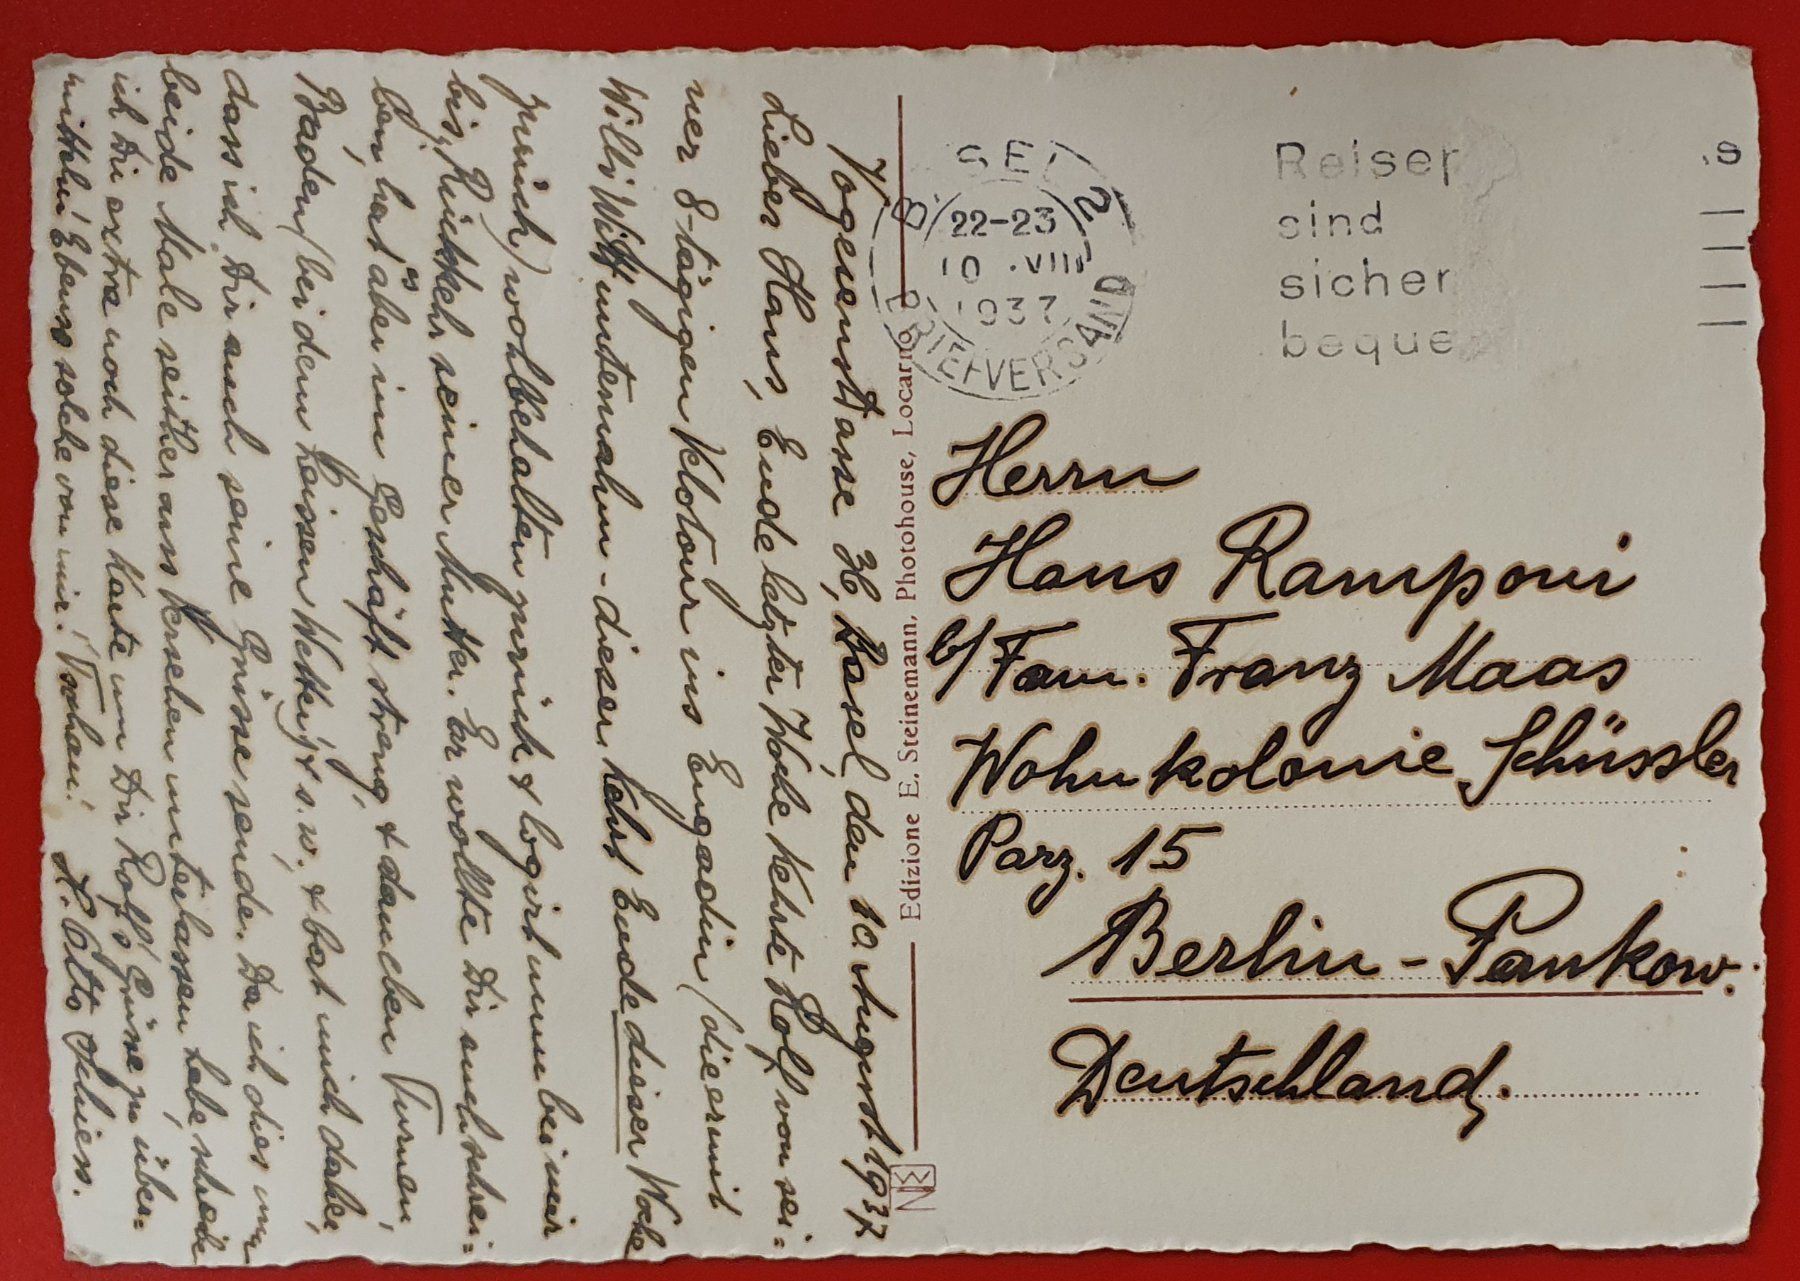 Vogesenstrasse 36, Basel, den 10. August 1937
Lieber Hans, Ende letzter Woche kehrte Rolf von sei=
ner 8-tägigen Velotour ins Engadin (die er mit
Willi Witt unternahm - dieser kehrt Ende dieser Woche
zurück) wohlbehalten zurück & logirt nun bei mir
bis z. Rückkehr seiner Mutter. Er wollte Dir auch schrei=
ben, hat es aber im Geschäft streng & daneben Turnen,
Baden (bei dem heissen Wetter) & s. w. & bat mich daher,
dass ich Dir auch seine Grüsse sende. Da ich dies nun
beide Male seither aus Versehen unterlassen habe, schreibe
ich Dir extra noch diese Karte um Dir Rolf's Grüsse zu über=
mitteln! Ebenso solche von mir! Tschau! H. Otto Schiess.
Edizione E. Steinemann, Photohouse, Locarno
NB
B SEL 2
22-23
10.VIII
1937
BRIEFVERSAND
Reisen s
sind
sicher
beque
Herrn
Hans Ramponi
b/ Fam. Franz Maas
Wohnkolonie Schüssler
Parz. 15
Berlin - Pankow.
Deutschland.